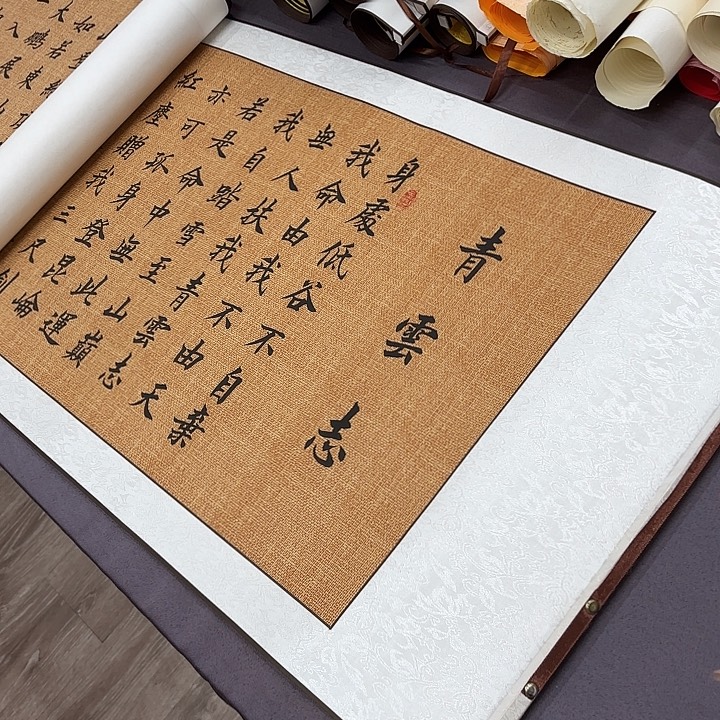 青雲志
身處低谷不自棄
我命由我不由天
無人扶我青雲志
我自踏雪至山巔
若是命中無此運
亦可孤身登昆崙
紅塵贈我三尺劍